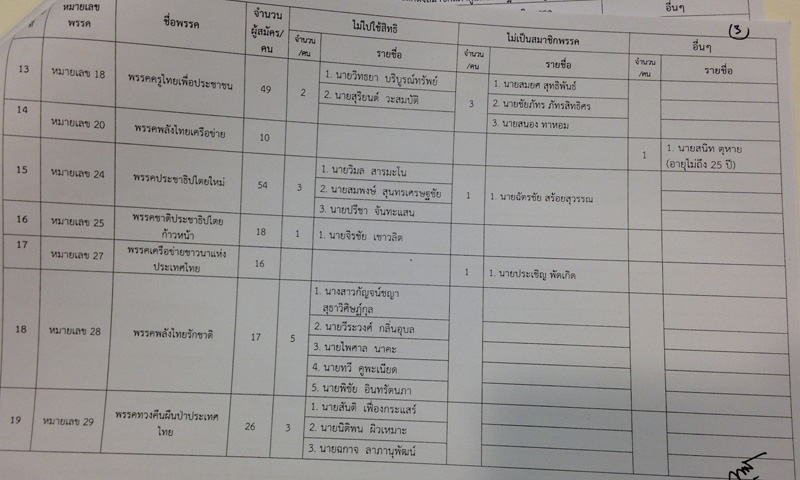 (3)
ที่
หมายเลข
พรรค
ชื่อพรรค
จำนวน
ผู้สมัคร/
คน
ไม่ไปใช้สิทธิ
จำนวน
/คน
รายชื่อ
ไม่เป็นสมาชิกพรรค
จำนวน
/คน
รายชื่อ
อื่นๆ
จำนวน
/คน
รายชื่อ
13 หมายเลข 18 พรรคครูไทยเพื่อประชาชน 49 2
1. นายวิทธยา บริบูรณ์ทรัพย์
2. นายสุริยนต์ วะสมบัติ
3
1. นายสมยศ สุทธิพันธ์
2. นายชัยภัทร ภัทรสิทธิศร
3. นายสนอง ทาหอม
14 หมายเลข 20 พรรคพลังไทยเครือข่าย 10
1
1. นายสนิท ตุหาย
(อายุไม่ถึง 25 ปี)
15 หมายเลข 24 พรรคประชาธิปไตยใหม่ 54 3
1. นายวิมล สารมะโน
2. นายสมพงษ์ สุนทรเศรษฐชัย
3. นายปรีชา จันทะแสน
1 1. นายฉัตรชัย สร้อยสุวรรณ
16 หมายเลข 25 พรรคชาติประชาธิปไตย
ก้าวหน้า
18 1 1. นายจิรชัย เชาวลิต
17 หมายเลข 27 พรรคเครือข่ายชาวนาแห่ง
ประเทศไทย
16
1 1. นายประเชิญ พัดเกิด
18 หมายเลข 28 พรรคพลังไทยรักชาติ 17 5
1. นางสาวกัญจน์ชญา
สุธาวิศิษฏ์กุล
2. นายวีระวงศ์ กลิ่นอุบล
3. นายไพศาล นาคะ
4. นายทวี คูพะเนียด
5. นายพิชัย อินทรัตนภา
19 หมายเลข 29 พรรคทวงคืนผืนป่าประเทศ
ไทย
26 3
1. นายสันติ เฟื่องกระแสร์
2. นายนิติพน ผิวเหมาะ
3. นายฉกาจ ลาภานุพัฒน์